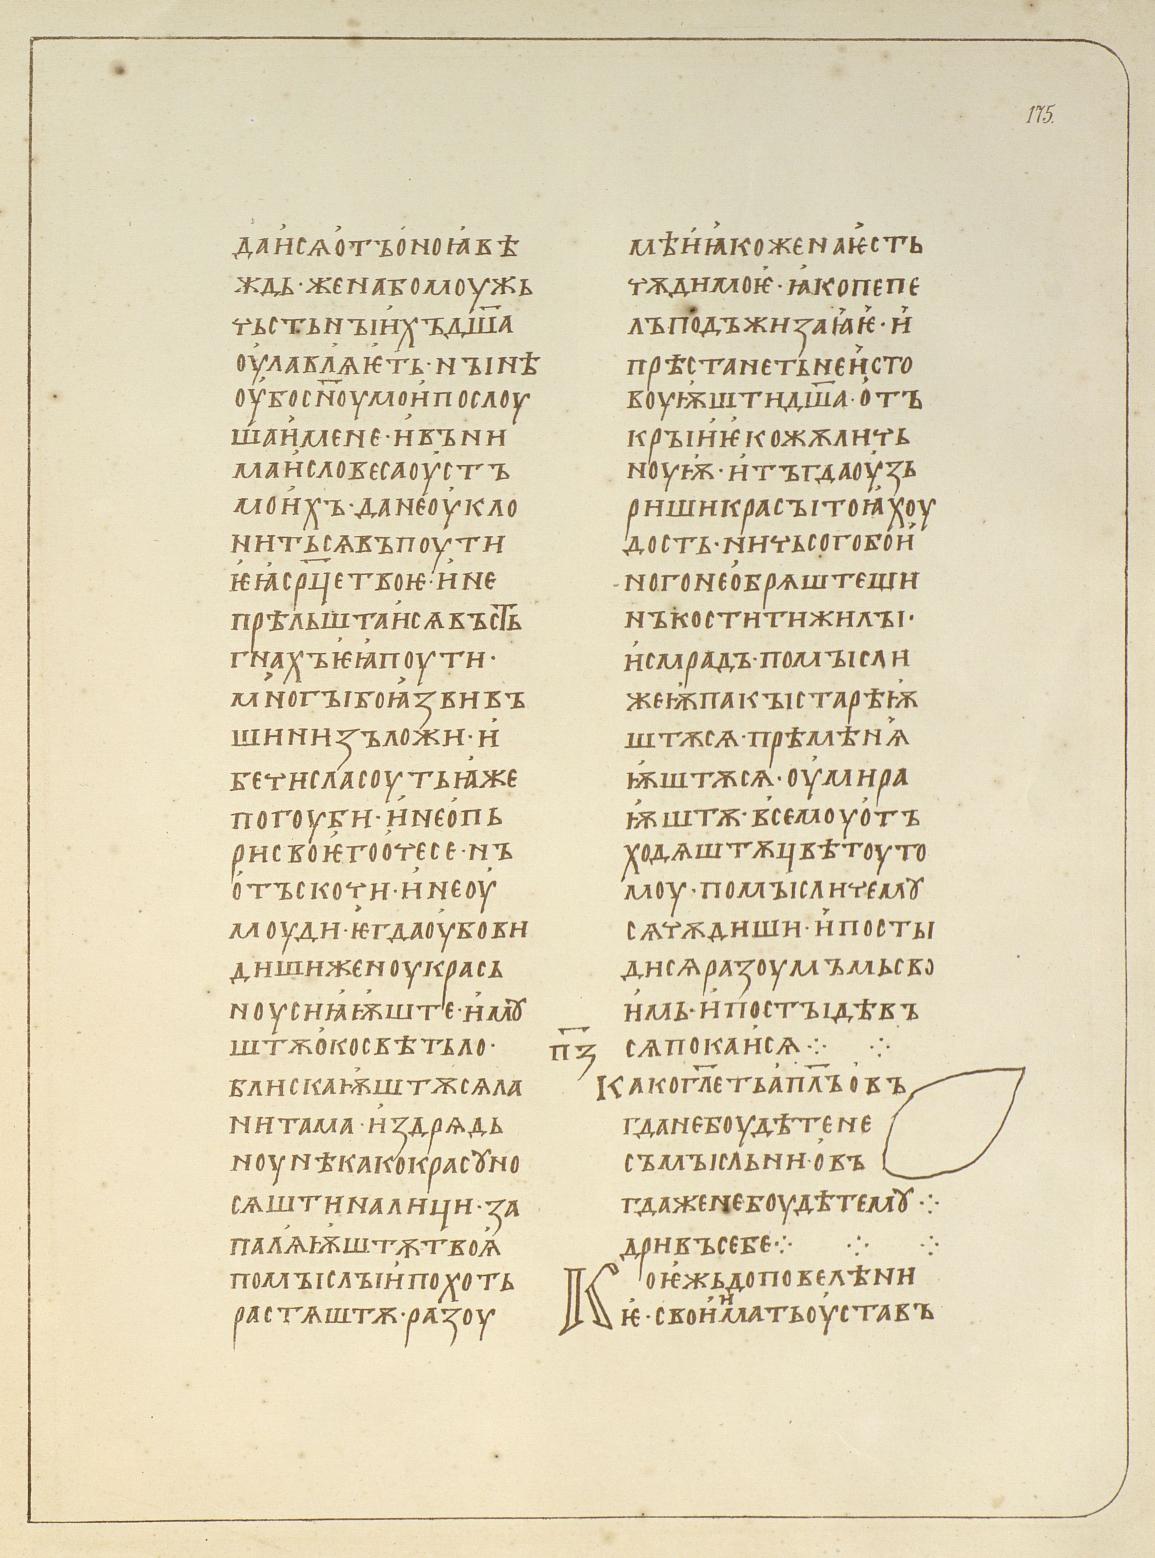 175.
даꙇсѧотъоноꙗвѣ
ждь·женабомоужь
чьстьнꙑихъдш҃а
оулавлꙗѥть·нꙑнѣ
оубосн҃оумоипослоу
шаимене·ивъни
маисловесаоустъ
моихъ·данеоукло
нитьсѧвъпоути
ѥꙗср҃цетвоѥ·ине
прѣльштаисѧвъст҃ь
гнахъѥꙗпоути·
многꙑбоꙗзвивъ
шинизъложи·и
бечисласоутьꙗже
погоуби·инеопь
рисвоѥгоочесе·нъ
отъскочи·инеоу
моуди·ѥгдаоубови
дишиженоукрась
ноусиꙗѭште·имꙋ
штѫокосвѣтьло·
блискаѭштѫсѧла
нитама·издрѧдь
ноунѣкакокрасꙋно
сѧштиналици·за
палꙗѭштѫтвоꙗ
помꙑслꙑипохоть
растѧштѫ·разоу
мѣиꙗкоженаѥсть
чѫдимоѥ·ꙗкопепе
лъподъжизаꙗѥ·и
прѣстанетьнеисто
воуѭштидш҃а·отъ
крꙑиѥкожѫличь
ноуѭ·итъгдаоузь
ришикрасꙑтоꙗхоу
дость·ничьсогобои
ногонеобрѧштеши
нъкоститижилꙑ·
исмрадъ·помꙑсли
жеѭпакꙑстарѣѭ
штѫсѧ·прѣмѣнꙗ
ѭштѫсѧ·оумира
ѭштѫ·всемоуотъ
ходѧштѫцвѣтоуто
моу·помꙑсличемꙋ
сѧчѫдиши·ипосты
дисѧразоумъмьсво
имь·ипостꙑдѣвъ
п҃з сѧпокаисѧ·:· ·:·
Какогл҃етьап҃лъовъ
гданебоудѣтене
съмꙑсльни·овъ
гдаженебоудѣтемꙋ·:·
дривъсебе·:· ·:· ·:·
Коѥждоповелѣни
ѥ·своииматьоуставъ